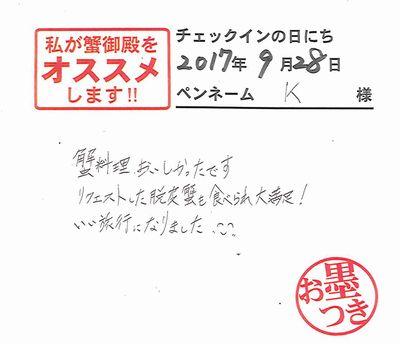 私が蟹御殿を
オススメ
します!!
チェックインの日にち
2017年 9月28日
ペンネーム K 様
蟹料理、おいしかったです
リクエストした脱皮蟹も食べられ大満足!
いい旅行になりました
お墨つき